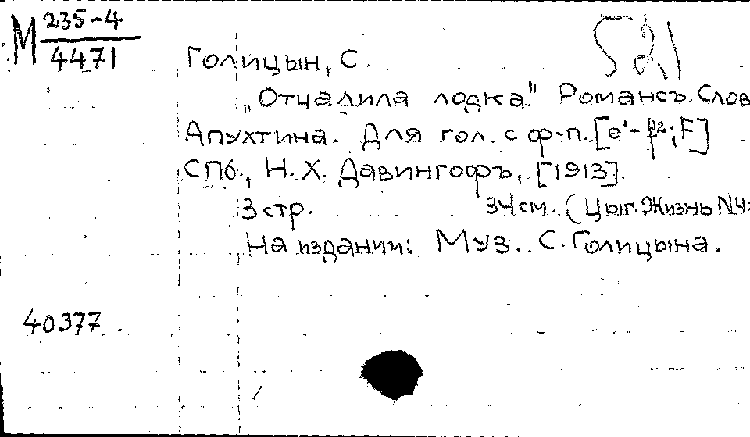 М 235-4
4471
521
Голицын, С.
„Отчалила лодка" Романсъ. Слов
Апухтина. Для гол. с ф-п. [e¹- ; F]
СПб., Н. Х. Давингофъ, [1913].
3 стр. 34 см. (Цыг. Жизнь №
На издании: Муз. С. Голицына.
40377